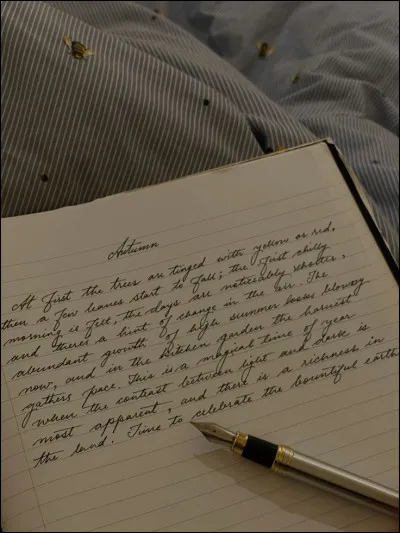 Autumn
At first the trees are tinged with yellow or red,
then a few leaves start to fall; the first chilly
morning is felt, the days are noticeably shorter,
and there's a hint of change in the air. The
abundant growth of high summer looks blowsy
now, and in the kitchen garden the harvest
gathers pace. This is a magical time of year
when the contrast between light and dark is
most apparent, and there is a richness in
the land. Time to celebrate the bountiful earth